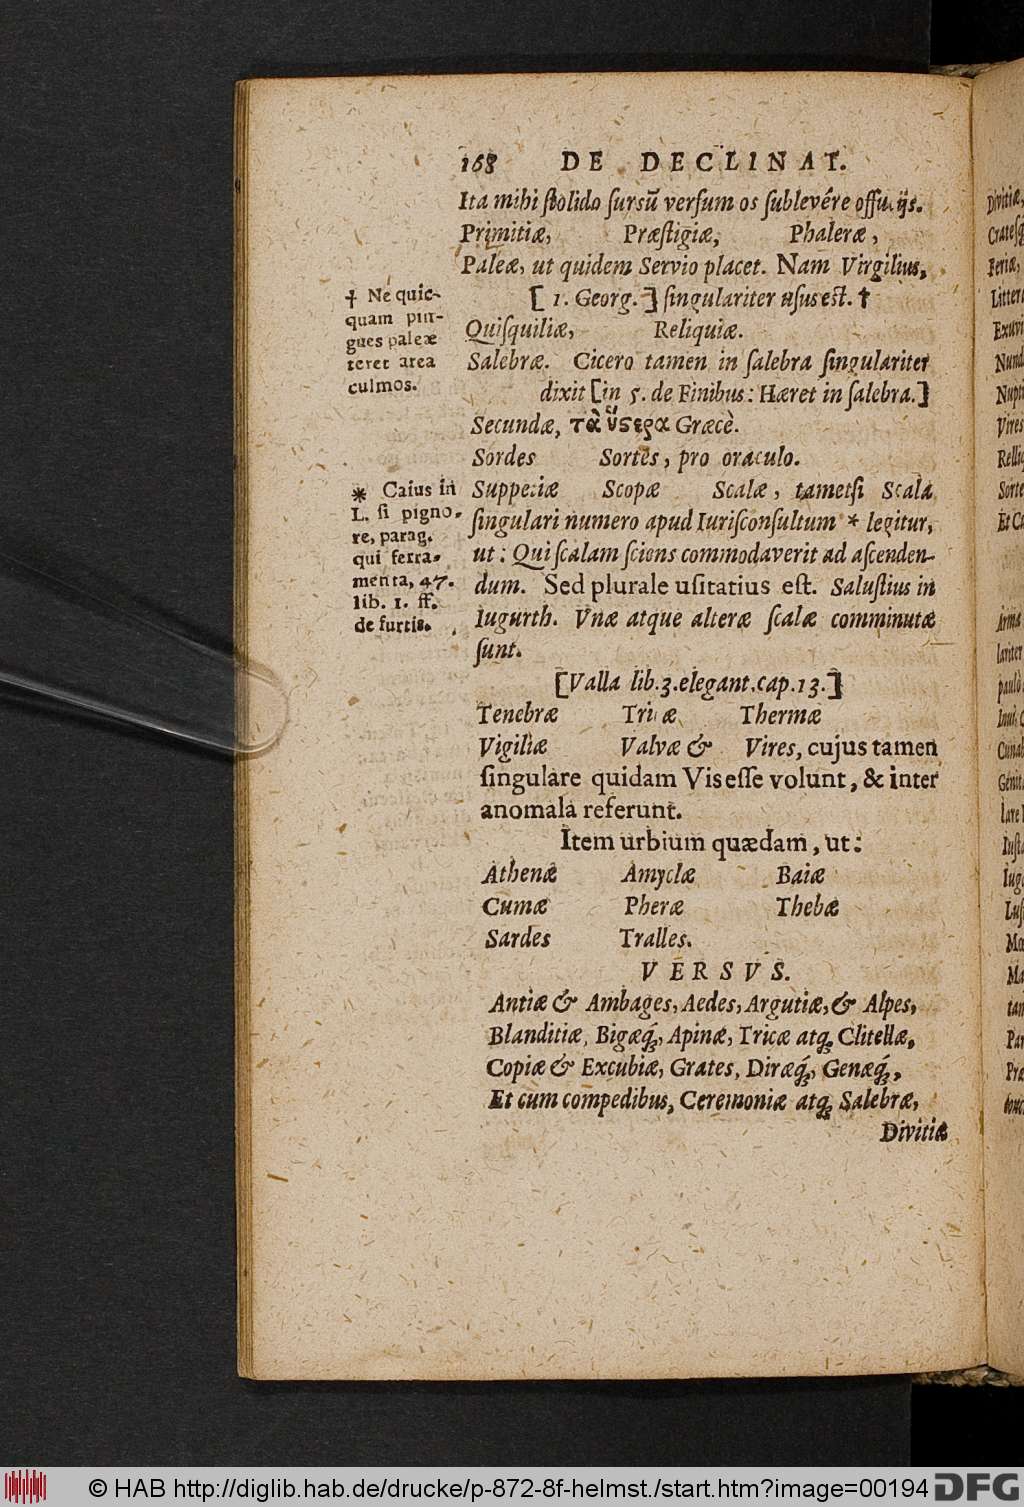 168 DE DECLINAT.
Ita mihi stolido sursũ versum os sublevêre offucijs.
Primitiæ, Præstigiæ, Phaleræ,
Paleæ, ut quidem Servio placet. Nam Virgilius,
[1. Georg.] singulariter usus est. †
Quisquiliæ, Reliquiæ.
Salebræ. Cicero tamen in salebra singulariter
dixit [in 5. de Finibus: Hæret in salebra.]
Secundæ, τὰ ὕστερα Græcè.
Sordes Sortes, pro oraculo.
Suppetiæ Scopæ Scalæ, tametsi Scala
singulari numero apud Iurisconsultum * legitur,
ut: Qui scalam sciens commodaverit ad ascenden-
dum. Sed plurale usitatius est. Salustius in
Iugurth. Vnæ atque alteræ scalæ comminutæ
sunt.
[Valla lib.3.elegant.cap.13.]
Tenebræ Tricæ Thermæ
Vigiliæ Valvæ & Vires, cujus tamen
singulare quidam Vis esse volunt, & inter
anomala referunt.
Item urbium quædam, ut:
Athenæ Amyclæ Baiæ
Cumæ Pheræ Thebæ
Sardes Tralles.
VERSVS.
Antiæ & Ambages, Aedes, Argutiæ, & Alpes,
Blanditiæ, Bigæq́;, Apinæ, Tricæ atq; Clitellæ,
Copiæ & Excubiæ, Grates, Diræq́;, Genæq́;,
Et cum compedibus, Ceremoniæ atq; Salebræ,
Divitiæ
† Ne quic-
quam pin-
gues paleæ
teret area
culmos.
* Caius in
L. si pigno-
re, parag.
qui ferra-
menta, 47.
lib. 1. ff.
de furtis.
Divitiæ,
Feriæ,
Vires
Et
Arma
lariter
© HAB http://diglib.hab.de/drucke/p-872-8f-helmst./start.htm?image=00194
DFG